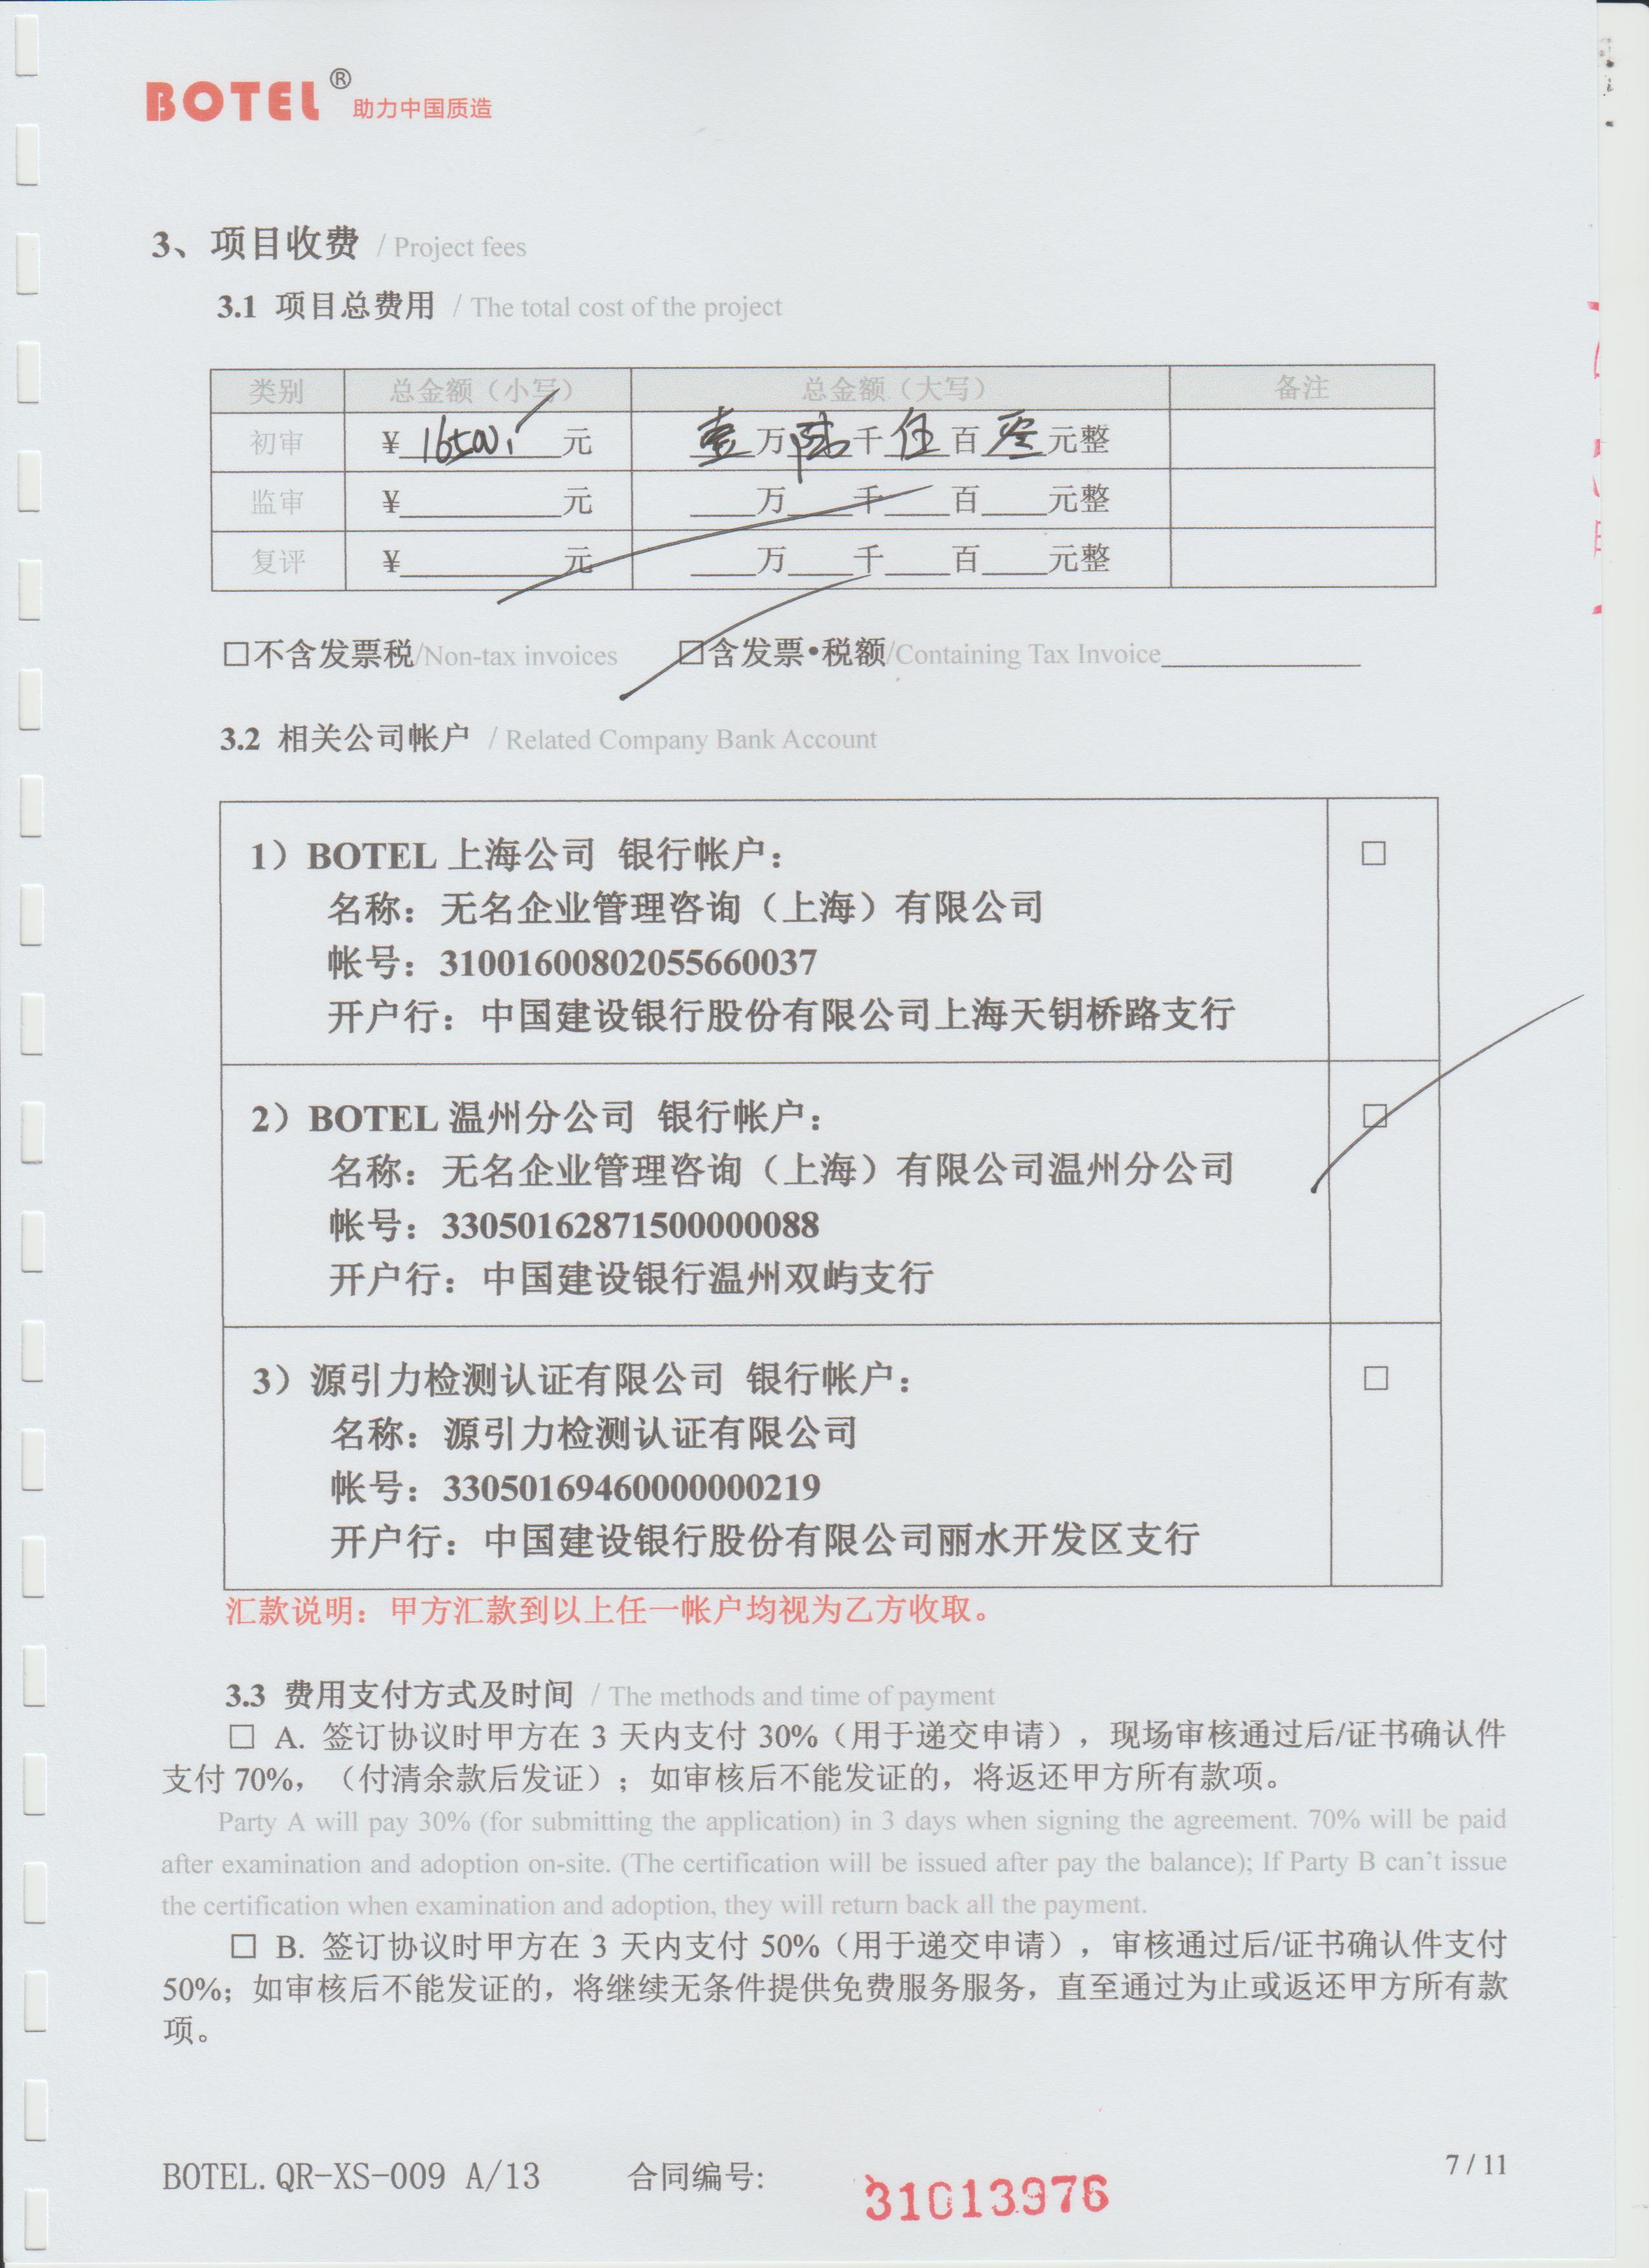 BOTEL® 助力中国质造
3、项目收费 / Project fees
3.1 项目总费用 / The total cost of the project
类别 总金额（小写） 总金额（大写） 备注
初审 ¥16500元 壹万陆千伍百零元整
监审 ¥________元 ____万____千____百____元整
复评 ¥________元 ____万____千____百____元整
□不含发票税/Non-tax invoices □含发票•税额/Containing Tax Invoice____________
3.2 相关公司帐户 / Related Company Bank Account
1）BOTEL 上海公司 银行帐户： □
名称：无名企业管理咨询（上海）有限公司
帐号：31001600802055660037
开户行：中国建设银行股份有限公司上海天钥桥路支行
2）BOTEL 温州分公司 银行帐户： □
名称：无名企业管理咨询（上海）有限公司温州分公司
帐号：33050162871500000088
开户行：中国建设银行温州双屿支行
3）源引力检测认证有限公司 银行帐户： □
名称：源引力检测认证有限公司
帐号：33050169460000000219
开户行：中国建设银行股份有限公司丽水开发区支行
汇款说明：甲方汇款到以上任一帐户均视为乙方收取。
3.3 费用支付方式及时间 / The methods and time of payment
□ A. 签订协议时甲方在 3 天内支付 30%（用于递交申请），现场审核通过后/证书确认件
支付 70%，（付清余款后发证）；如审核后不能发证的，将返还甲方所有款项。
Party A will pay 30% (for submitting the application) in 3 days when signing the agreement. 70% will be paid
after examination and adoption on-site. (The certification will be issued after pay the balance); If Party B can't issue
the certification when examination and adoption, they will return back all the payment.
□ B. 签订协议时甲方在 3 天内支付 50%（用于递交申请），审核通过后/证书确认件支付
50%；如审核后不能发证的，将继续无条件提供免费服务服务，直至通过为止或返还甲方所有款
项。
BOTEL.QR-XS-009 A/13 合同编号: 31013976 7 / 11